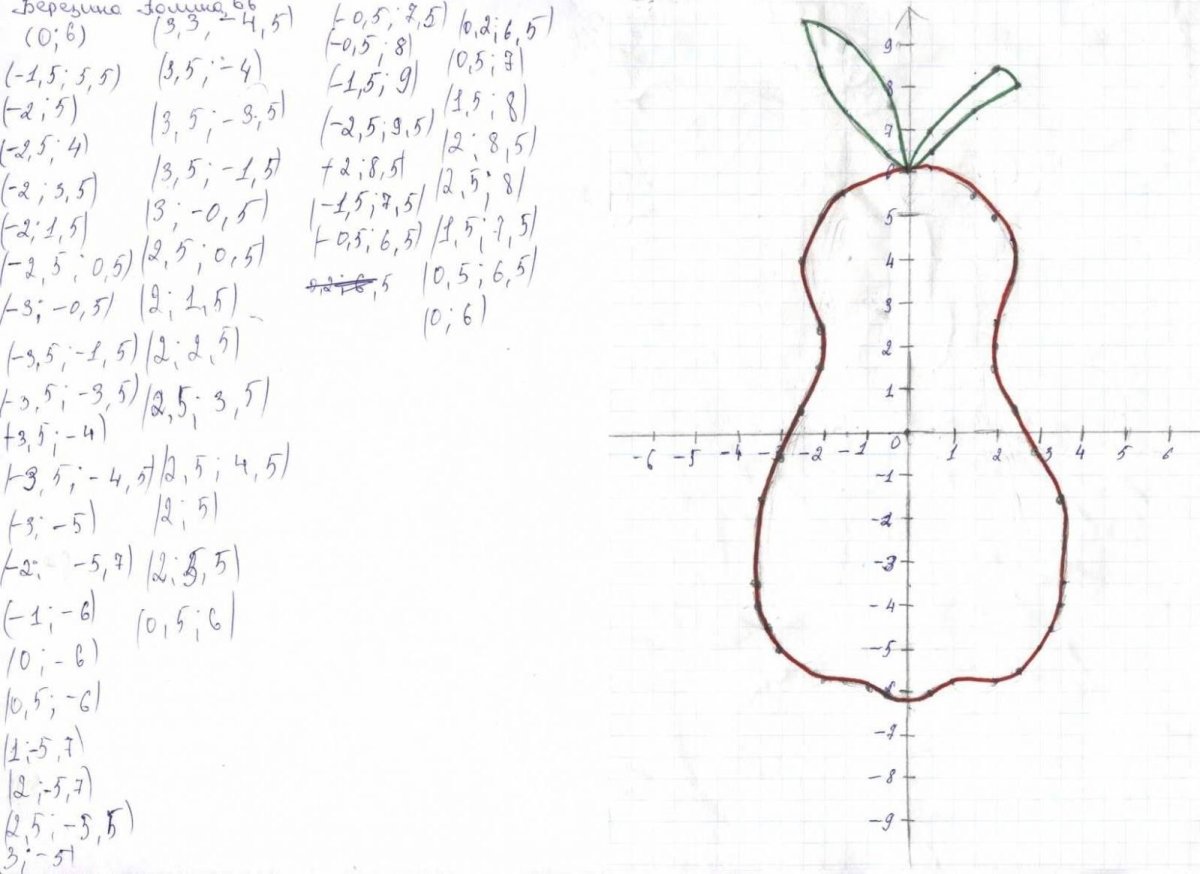 Березина Полина 6б
(0; 6)
(-1,5; 5,5)
(-2; 5)
(-2,5; 4)
(-2; 3,5)
(-2; 1,5)
(-2,5; 0,5)
(-3; -0,5)
(-3,5; -1,5)
(-3,5; -3,5)
(-3,5; -4)
(-3,5; -4,5)
(-3; -5)
(-2; -5,7)
(-1; -6)
(0; -6)
(0,5; -6)
(1; -5,7)
(2; -5,7)
(2,5; -5,5)
3; -5)
(3,3; -4,5)
(3,5; -4)
(3,5; -3,5)
(3,5; -1,5)
(3; -0,5)
(2,5; 0,5)
(2; 1,5)
(2; 2,5)
(2,5; 3,5)
(2,5; 4,5)
(2; 5)
(2; 5,5)
(0,5; 6)
(-0,5; 7,5)
(-0,5; 8)
(-1,5; 9)
(-2,5; 9,5)
(-2; 8,5)
(-1,5; 7,5)
(-0,5; 6,5)
(0,2; 6,5)
(0,5; 7)
(1,5; 8)
(2; 8,5)
(2,5; 8)
(1,5; 7,5)
(0,5; 6,5)
(0; 6)
9
8
7
6
5
4
3
2
1
-6 -5 -4 -3 -2 -1 0 1 2 3 4 5 6
-1
-2
-3
-4
-5
-6
-7
-8
-9